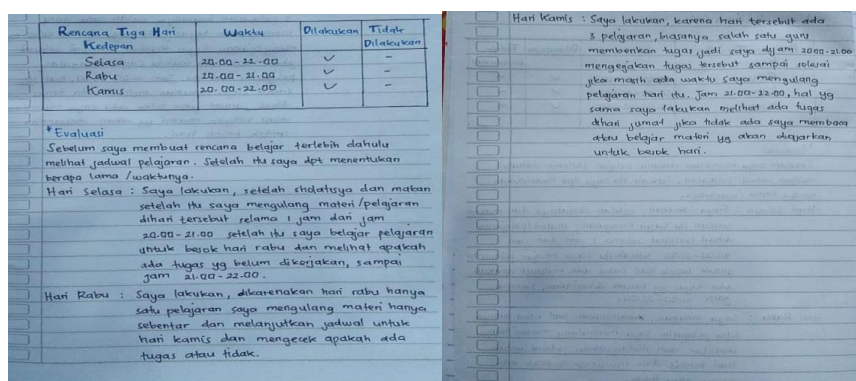 Rencana Tiga Hari Kedepan | Waktu | Dilakukan | Tidak Dilakukan
Selasa | 20.00 - 22.00 | ✓ | -
Rabu | 20.00 - 21.00 | ✓ | -
Kamis | 20.00 - 22.00 | ✓ | -
*Evaluasi
Sebelum saya membuat rencana belajar terlebih dahulu
melihat jadwal pelajaran. Setelah itu saya dpt menentukan
berapa lama /waktunya.
Hari Selasa : Saya lakukan, setelah sholatisya dan makan
setelah itu saya mengulang materi/pelajaran
dihari tersebut selama 1 jam dari jam
20.00 - 21.00 setelah itu saya belajar pelajaran
untuk besok hari rabu dan melihat apakah
ada tugas yg belum dikerjakan, sampai
jam 21.00 - 22.00.
Hari Rabu : Saya lakukan, dikarenakan hari rabu hanya
satu pelajaran saya mengulang materi hanya
sebentar dan melanjutkan jadwal untuk
hari kamis dan mengecek apakah ada
tugas atau tidak.
Hari Kamis : Saya lakukan, karena hari tersebut ada
3 pelajaran, biasanya salah satu guru
memberikan tugas jadi saya djam 20.00-21.00
mengerjakan tugas tersebut sampai selesai
jika masih ada waktu saya mengulang
pelajaran hari itu. Jam 21.00-22.00, hal yg
sama saya lakukan melihat ada tugas
dihari jumat jika tidak ada saya membaca
atau belajar materi yg akan diajarkan
untuk besok hari.